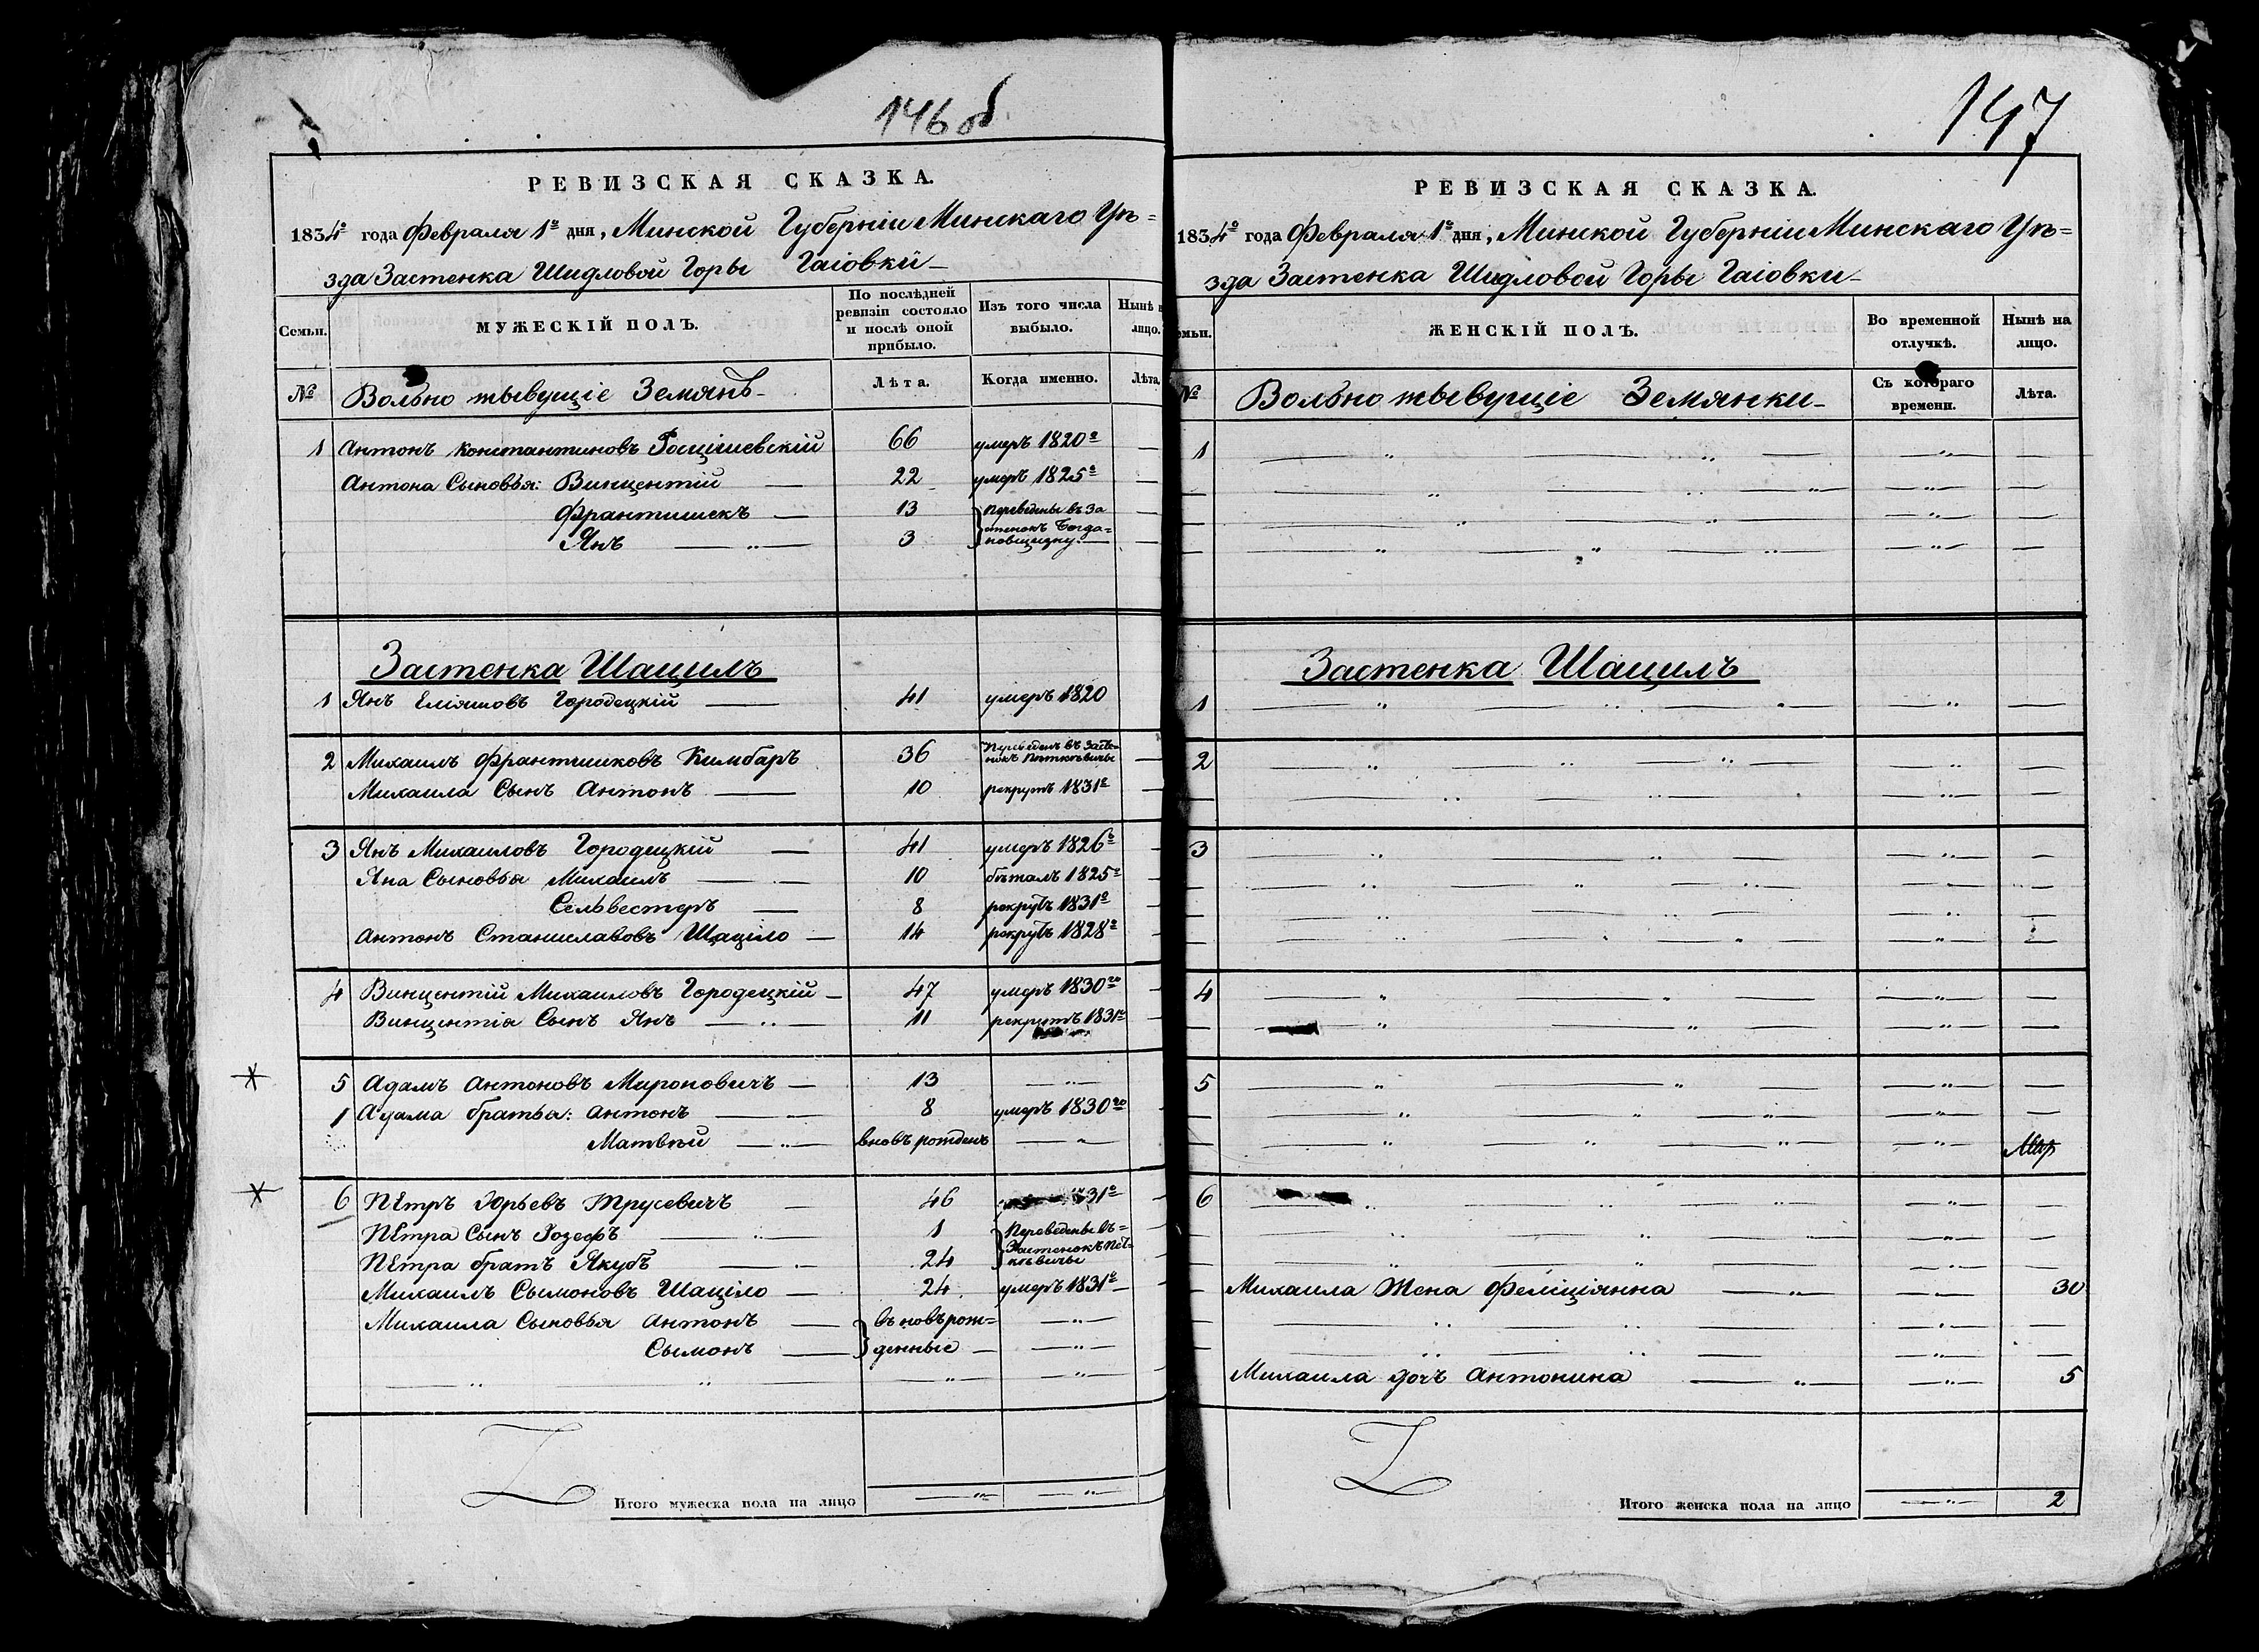 146 об
РЕВИЗСКАЯ СКАЗКА.
1834го года Февраля 1го дня, Минской Губерніи Минскаго Уѣ=
зда Застенка Шидловой Горы Гаіовки
Семьи. МУЖЕСКІЙ ПОЛЪ. По послѣдней ревизіи состояло и послѣ оной прибыло. Изъ того числа выбыло. Нынѣ н лицо.
№ Вольно жывущіе Земянѣ Лѣта. Когда именно. Лѣта.
1 Антонъ Константиновъ Росцішевскій 66 умеръ 1820го
Антона Сыновья: Винцентій 22 умеръ 1825го
Франтишекъ 13 Переведены въ За
Янъ 3 стенокъ Богда=
новщизну
Застенка Шацилъ
1 Янъ Еліяшовъ Городецкій 41 умеръ 1820
2 Михаилъ Франтишковъ Кимбаръ 36 Переведенъ въ Засте=
нокъ
Михаила Сынъ Антонъ 10 рекрутъ 1831го
3 Янъ Михаиловъ Городецкій 41 умеръ 1826го
Яна Сыновья Михаилъ 10 бѣжалъ 1825го
Сельвестеръ 8 рекрутъ 1831го
Антонъ Станиславовъ Шаціло 14 рекрутъ 1828го
4 Винцентій Михаиловъ Городецкій 47 умеръ 1830го
Винцентія Сынъ Янъ 11 рекрутъ 1831го
5 Адамъ Антоновъ Мироновичъ 13
1 Адама братья: Антонъ 8 умеръ 1830го
Матвѣй вновь рожденъ
6 Пётръ Юрьевъ Трусевичъ 46 1831го
Пётра Сынъ Іозефъ 1 Переведены въ=
Пётра братъ Якубъ 24 Застенокъ Пет=
кѣвичы
Михаилъ Сымоновъ Шаціло 24 умеръ 1831го
Михаила Сыновья Антонъ въновърож=
Сымонъ денные
Итого мужеска пола на лицо
147
РЕВИЗСКАЯ СКАЗКА.
1834го года Февраля 1го дня, Минской Губерніи Минскаго Уѣ=
зда Застенка Шидловой Горы Гаіовки
емьи. ЖЕНСКІЙ ПОЛЪ. Во временной отлучкѣ. Нынѣ на лицо.
№ Вольно жывущіе Земянки Съ котораго времени. Лѣта.
1
Застенка Шацилъ
1
2
3
4
5
6
Михаила Жена Феліціянна 30
Михаила дочъ Антонина 5
Итого женска пола на лицо 2